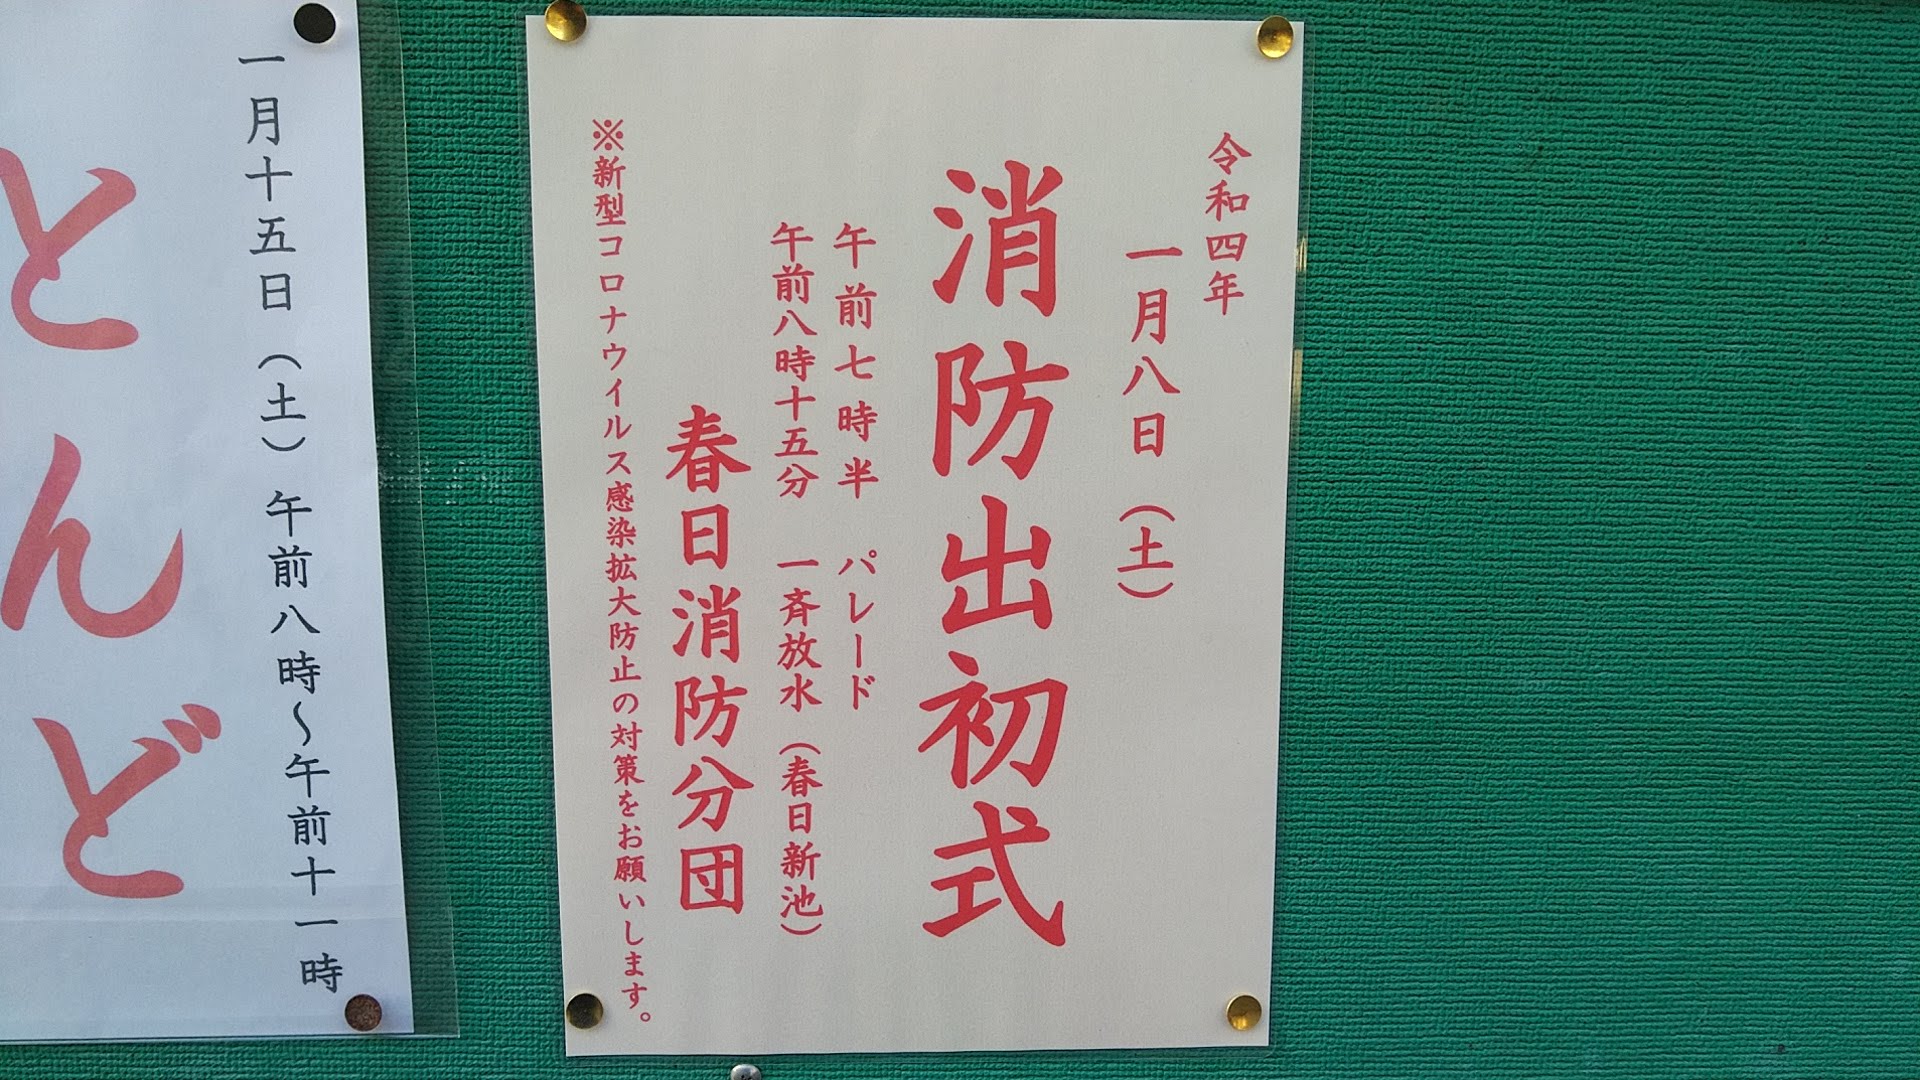 令和四年
一月八日（土）
消防出初式
午前七時半　パレード
午前八時十五分　一斉放水（春日新池）
春日消防分団
※新型コロナウイルス感染拡大防止の対策をお願いします。
一月十五日（土）午前八時～午前十一時
とんど